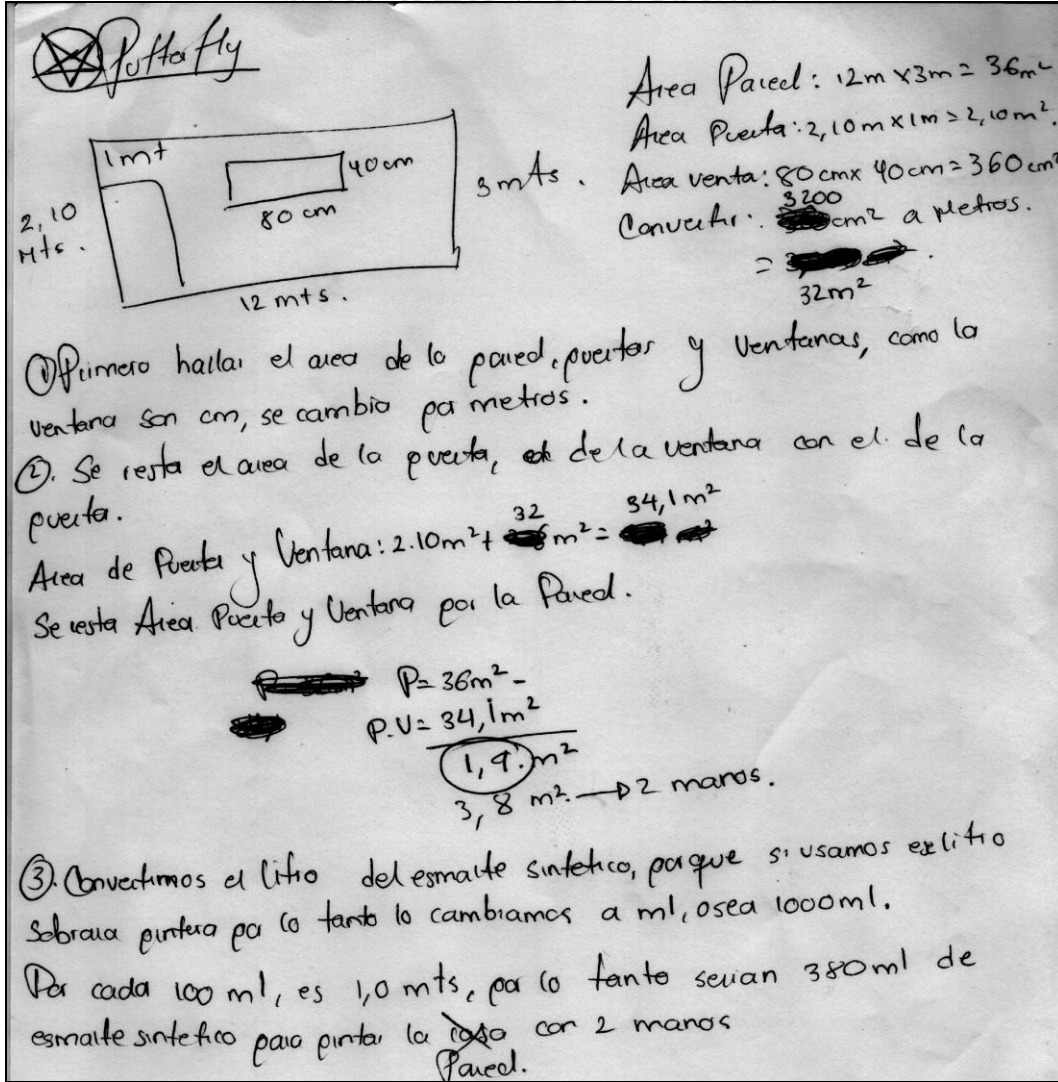 Area Pared: 12m x 3m = 36m²
Area Puerta: 2,10m x 1m = 2,10m².
Area venta: 80 cm x 40 cm = 360 cm²
3200
Convertir: cm² a Metros.
=
32m²
1mt
40 cm
80 cm
3 mts.
2,10
Mts.
12 mts.
① Primero hallar el area de la pared, puertas y ventanas, como la
ventana son cm, se cambio por metros.
②. Se resta el area de la puerta, de la ventana con el de la
puerta.
32 34,1m²
Area de Puerta y Ventana: 2.10m² + m² =
Se resta Area Puerta y Ventana por la Pared.
P= 36m² -
P.V= 34,1m²
1,9 m²
3,8 m². → 2 manos.
③. Convertimos el litro del esmalte sintetico, porque si usamos litro
Sobrara pintura por lo tanto lo cambiamos a ml, osea 1000ml.
Por cada 100 ml, es 1,0 mts, por lo tanto serian 380ml de
esmalte sintetico para pintar la casa con 2 manos
Pared.